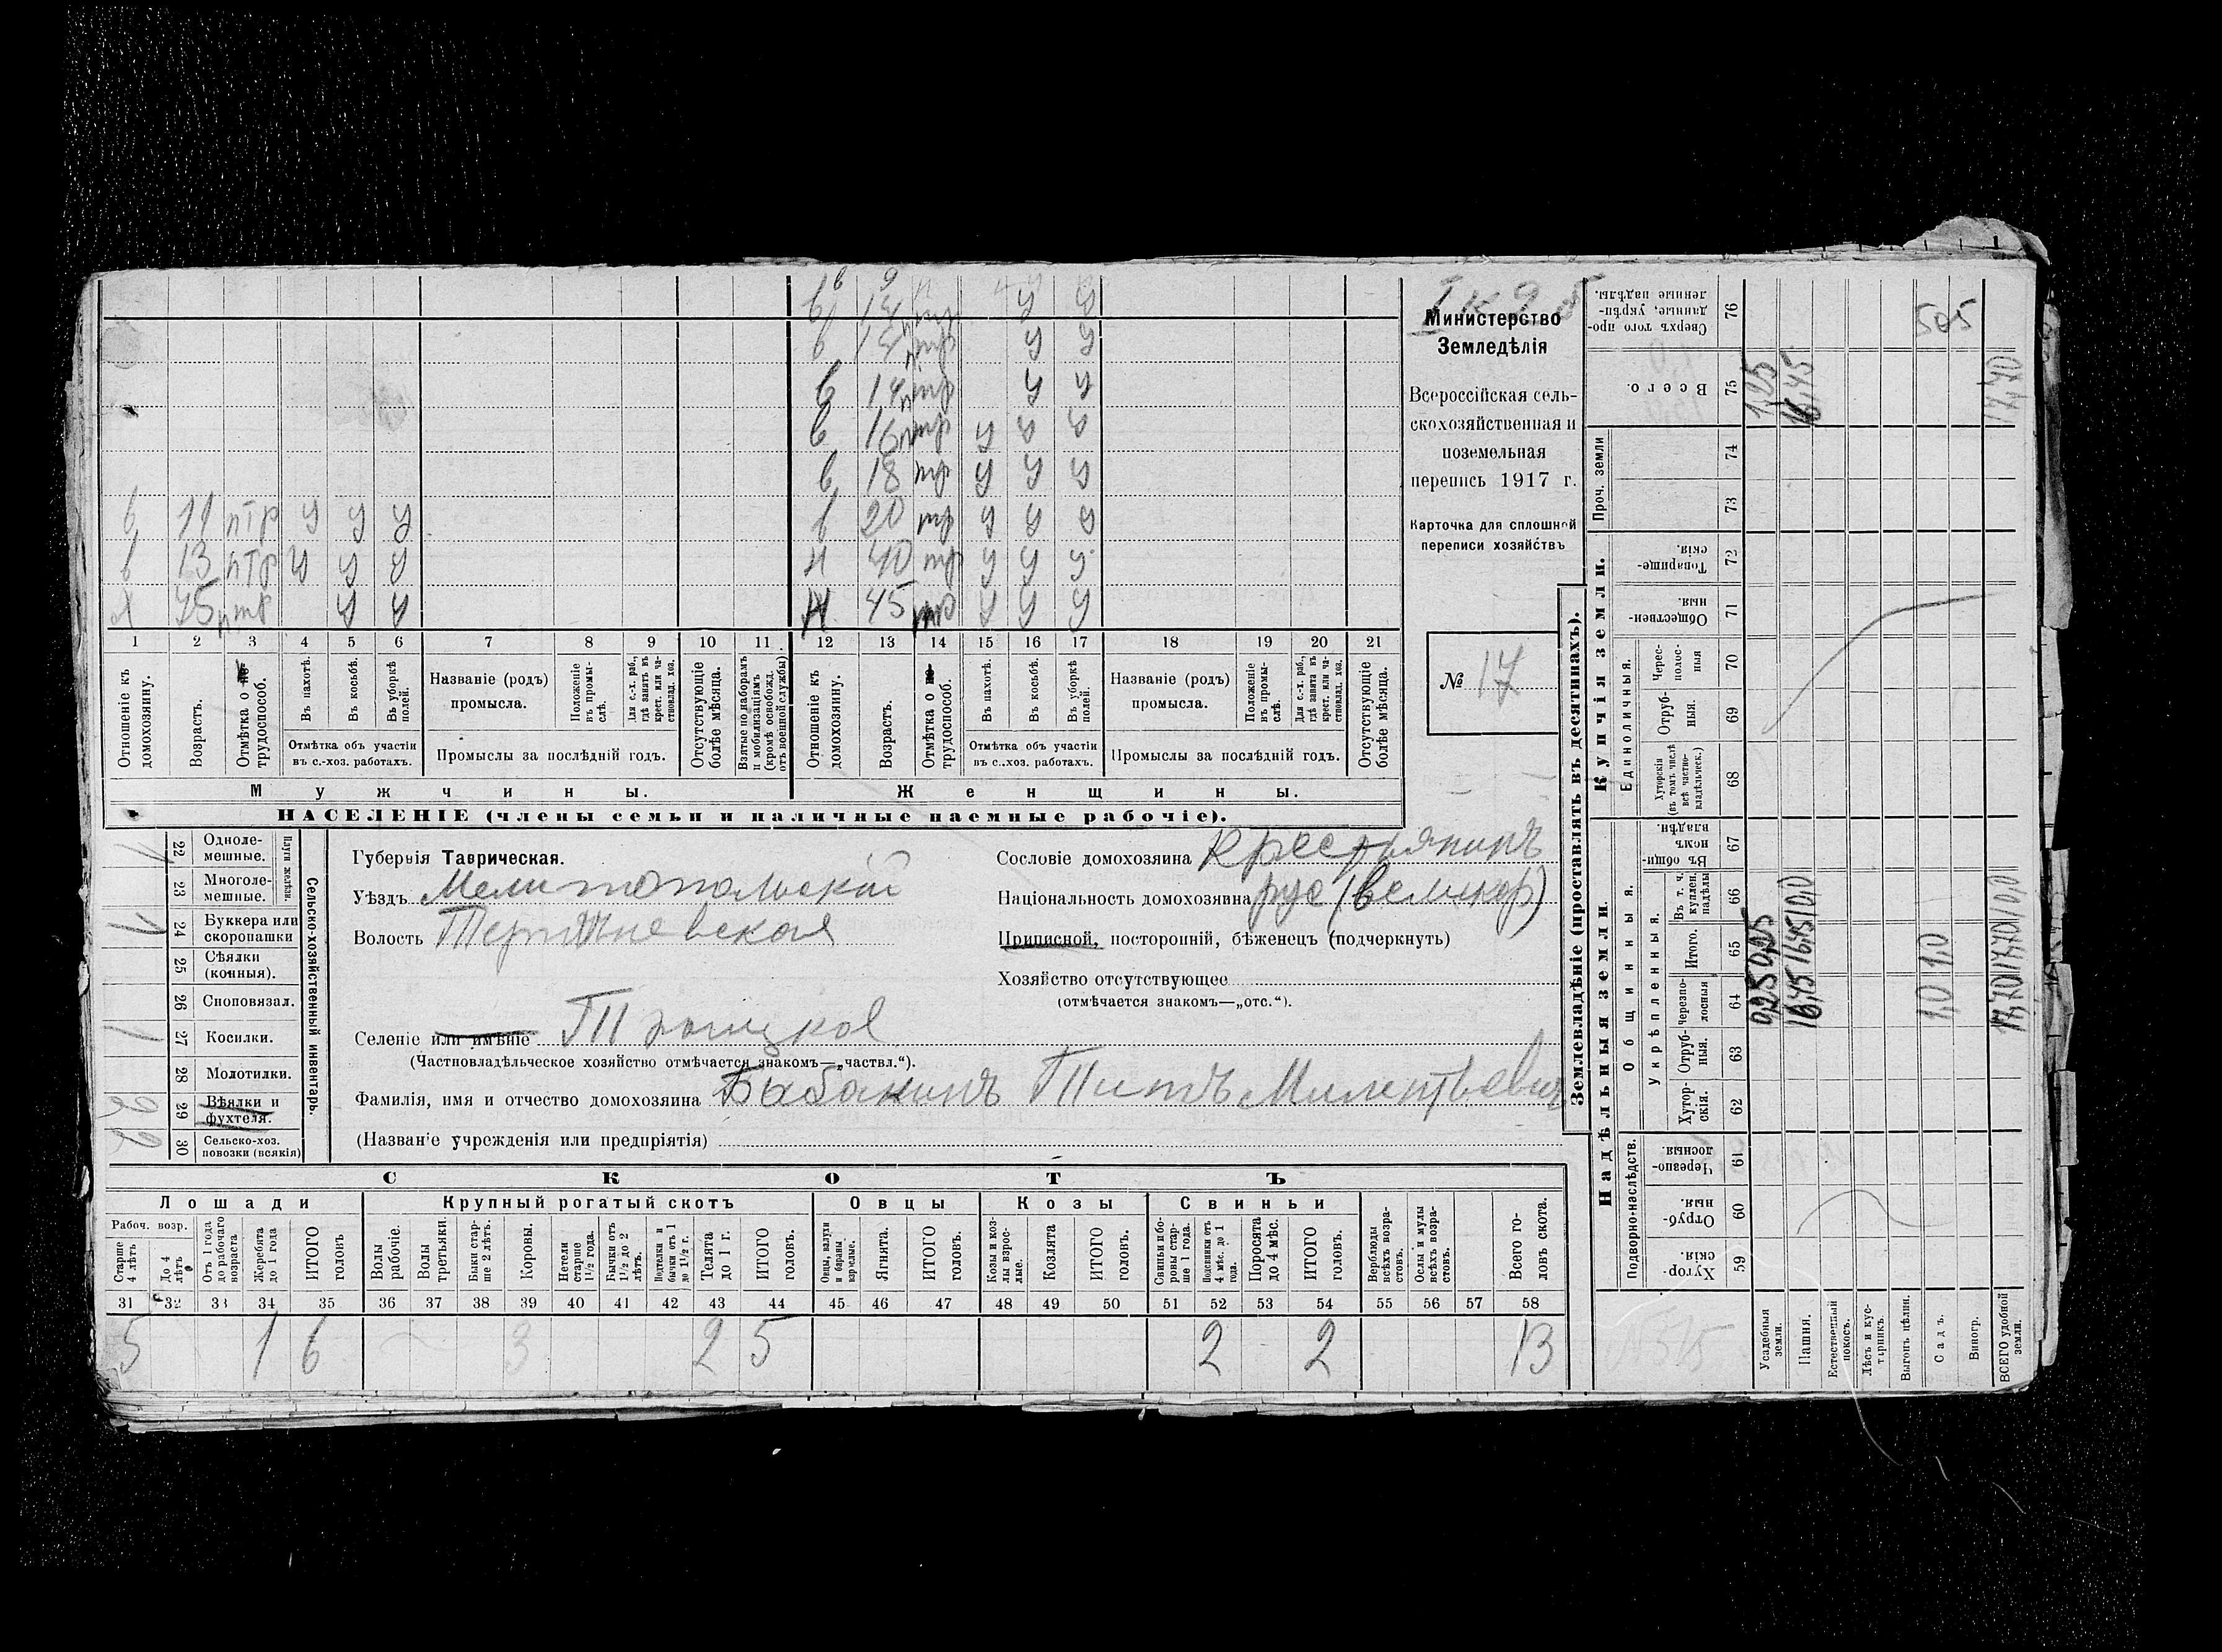 в 9
в 13 у у
в 13 у у
в 14 у у
в 16 у у у
в 18 тр у у у
в 11 птр у у у в 20 тр у у у
в 13 птр у у у н 40 тр у у у
х 45 птр у у н 45 тр у у у
1 2 3 4 5 6 7 8 9 10 11 12 13 14 15 16 17 18 19 20 21
Отношеніе къ домохозяину.
Возрастъ.
Отмѣтка о трудоспособ.
Въ пахотѣ.
Въ косьбѣ.
Въ уборкѣ полей.
Отмѣтка объ участіи въ с.-хоз. работахъ.
Названіе (родъ) промысла.
Положеніе въ промыслѣ.
Для с.-х. раб., гдѣ занятъ въ крест. или частновлад. хоз.
Промыслы за послѣдній годъ.
Отсутствующіе болѣе мѣсяца.
Взятые по наборамъ и мобилизаціямъ (кромѣ освобожд. отъ военной службы)
Отношеніе къ домохозяину.
Возрастъ.
Отмѣтка о трудоспособ.
Въ пахотѣ.
Въ косьбѣ.
Въ уборкѣ полей.
Отмѣтка объ участіи въ с..хоз. работахъ.
Названіе (родъ) промысла.
Положеніе въ промыслѣ.
Для с.-х. раб., гдѣ занята въ крест. или частновлад. хоз.
Промыслы за послѣдній годъ.
Отсутствующіе болѣе мѣсяца.
Мужчины. Женщины.
НАСЕЛЕНІЕ (члены семьи и наличные наемные рабочіе).
Министерство
Земледѣлія
Всероссійская сель-
скохозяйственная и
поземельная
перепись 1917 г.
Карточка для сплошной
переписи хозяйствъ
№ 17
22 Одноле-мешные. 1
23 Многоле-мешные.
Плуги желѣзн.
24 Буккера или скоропашки 1
25 Сѣялки (конныя).
26 Сноповязал.
27 Косилки. 1
28 Молотилки.
29 Вѣялки и фухтеля.
30 Сельско-хоз. повозки (всякія) 2
Сельско-хозяйственный инвентарь.
Губернія Таврическая.
Уѣздъ Мелитопольскій
Волость
Селеніе или имѣніе Троицкое
(Частновладѣльческое хозяйство отмѣчается знакомъ—„частвл.“).
Фамилія, имя и отчество домохозяина Бабакинъ Титъ Милентьевич
(Названіе учрежденія или предпріятія)
Сословіе домохозяина Крестьянинъ
Національность домохозяина рус (великор)
Приписной, посторонній, бѣженецъ (подчеркнуть)
Хозяйство отсутствующее
(отмѣчается знакомъ—„отс.“).
СКОТЪ
Лошади Крупный рогатый скотъ Овцы Козы Свиньи
Рабоч. возр.
Старше 4 лѣтъ
До 4 лѣтъ
Отъ 1 года до рабочаго возраста
Жеребята до 1 года
ИТОГО головъ
Волы рабочіе.
Волы третьяки.
Быки старше 2 лѣтъ.
Коровы.
Нетели старше 1½ года.
Бычки отъ 1½ до 2 лѣтъ.
Подтелки и бычки отъ 1 до 1½ г.
Телята до 1 г.
ИТОГО головъ.
Овцы, валухи и бараны взрослые.
Ягнята.
ИТОГО головъ.
Козы и козлы взрослые.
Козлята
ИТОГО головъ.
Свиньи и боровы старше 1 года.
Подсвинки отъ 4 мѣс. до 1 года.
Поросята до 4 мѣс.
ИТОГО головъ.
Верблюды всѣхъ возрастовъ.
Ослы и мулы всѣхъ возрастовъ.
Всего головъ скота.
31 32 33 34 35 36 37 38 39 40 41 42 43 44 45 46 47 48 49 50 51 52 53 54 55 56 57 58
5 1 6 3 2 5 2 2 13
Землевладѣніе (проставлять въ десятинахъ).
Надѣльныя земли. Купчія земли.
Подворно-наслѣдств.
Общинныя.
Укрѣпленныя.
Единоличныя.
Проч. земли
Хуторскія. 59
Отрубныя. 60
Черезполосныя. 61
Хуторскія. 62
Отрубныя. 63
Черезполосныя 64
Итого. 65
Въ т. ч. куплен. надѣлы 66
Въ общинномъ владѣн. 67
Хуторскія (въ томъ числѣ всѣ частновладѣльческ.) 68
Отрубныя. 69
Чересполосныя 70
Общественныя. 71
Товарищескія. 72
73
74
Всего. 75
Сверхъ того проданные, укрѣпленные надѣлы. 76
Усадебныя земли. 0,25 1,25
Пашня. 16,45 16,45 0,0 16,45
Естественный покосъ.
Лѣсъ и кустарникъ.
Выгонъ цѣлин.
Садъ. 1,0 1,0 505
Виногр.
ВСЕГО удобной земли. 17,70 17,70 0,0 17,70